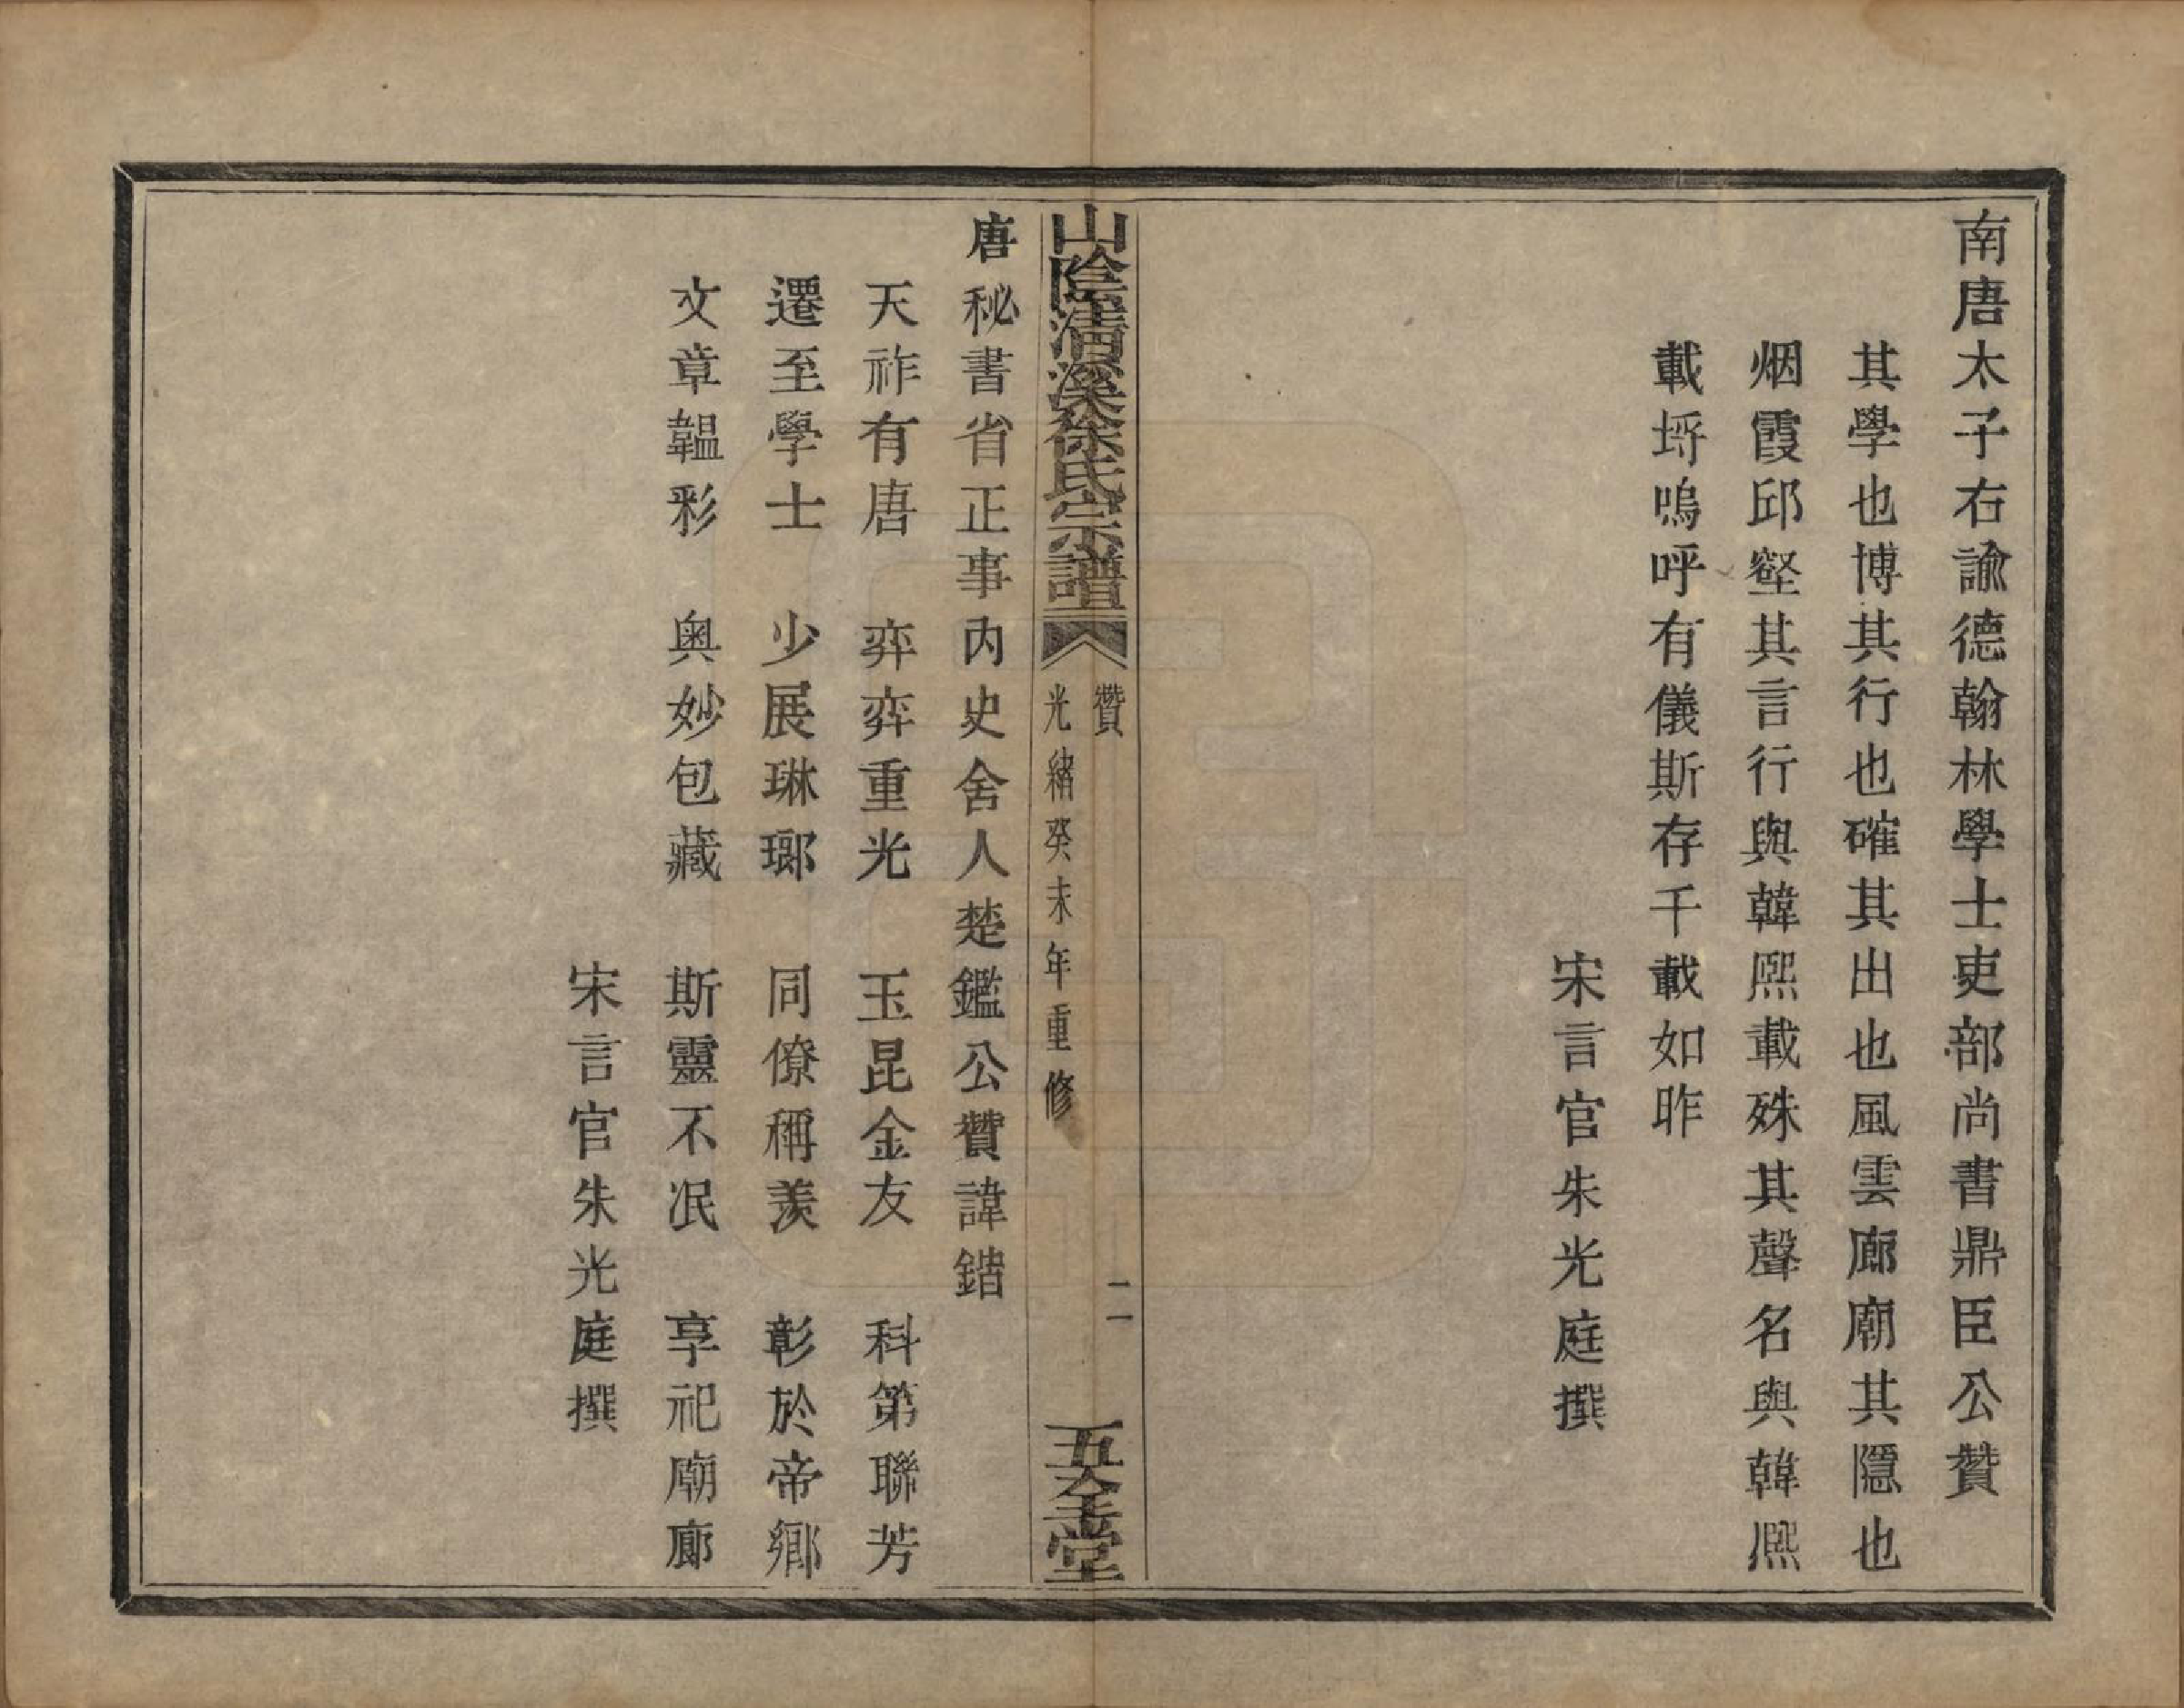 南唐太子右諭德翰林學士吏部尚書鼎臣公贊
其學也博其行也確其出也風雲廊廟其隱也
烟霞邱壑其言行與韓熙載殊其聲名與韓熙
載埒嗚呼有儀斯存千載如昨
宋言官朱光庭撰
山陰清溪徐氏宗譜
贊
光緒癸未年重修
二
五全堂
唐秘書省正事內史舍人楚鑑公贊諱鍇
天祚有唐 弈弈重光 玉昆金友 科第聯芳
遷至學士 少展琳瑯 同僚稱羨 彰於帝鄉
文章韞彩 奥妙包藏 斯靈不泯 享祀廟廊
宋言官朱光庭撰